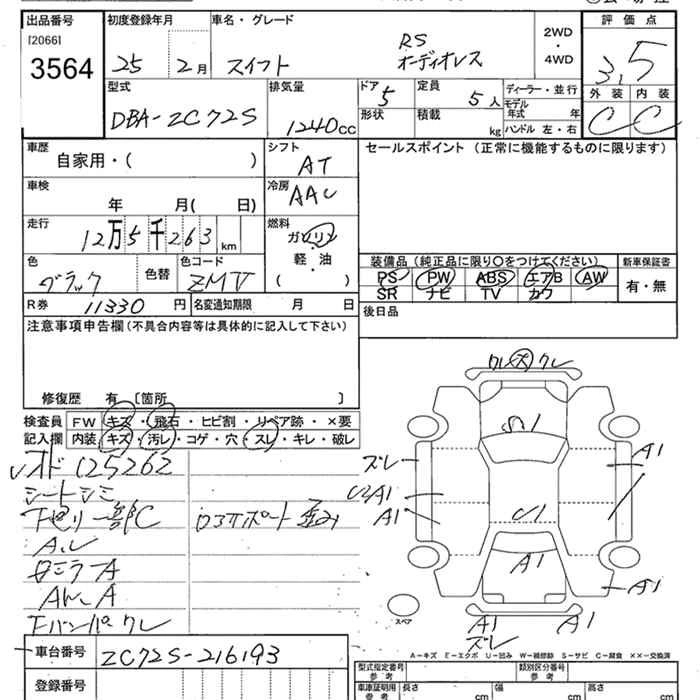 出品番号 初度登録年月 車名・グレード 評価点
[2066]
3564 25 2月 スイフト RS オーディオレス 2WD・4WD 3.5
型式 排気量 ドア 5 定員 5人 ディーラー・並行 外装 内装
DBA-ZC72S 1240cc 形状 積載 kg モデル年式 年 C C
ハンドル 左・右
車歴 シフト セールスポイント (正常に機能するものに限ります)
自家用・( ) AT
車検 冷房
年 月( 日) AAC
走行 燃料
12万5千263km ガソリン・軽・油( )
色 色替 色コード 装備品 (純正品に限り○をつけてください) 新車保証書
ブラック ZMV PS PW ABS エアB AW 有・無
SR ナビ TV カワ
R券 11330円 名変通知期限 月 日 後日品
注意事項申告欄(不具合内容等は具体的に記入して下さい)
修復歴 有 〔箇所 〕
検査員 FW キズ・飛石・ヒビ割・リペア跡・×要
記入欄 内装 キズ・汚レ・コゲ・穴・スレ・キレ・破レ
オド 125262
シートシミ
下廻リ一部C コアサポート歪み
A.U
ロミラーA
AW A
FバンパーワレA
車台番号 ZC72S-216193
登録番号
A1
ズレ
A1
A1
U1
A1
A1
A1
A1
ズレ
スペア
A-キズ E-エクボ U-凹み W-補修跡 S-サビ C-腐食 XX-交換済
型式指定番号 参考 類別区分番号 参考
車庫証明用 参考 長さ cm 幅 cm 高さ cm